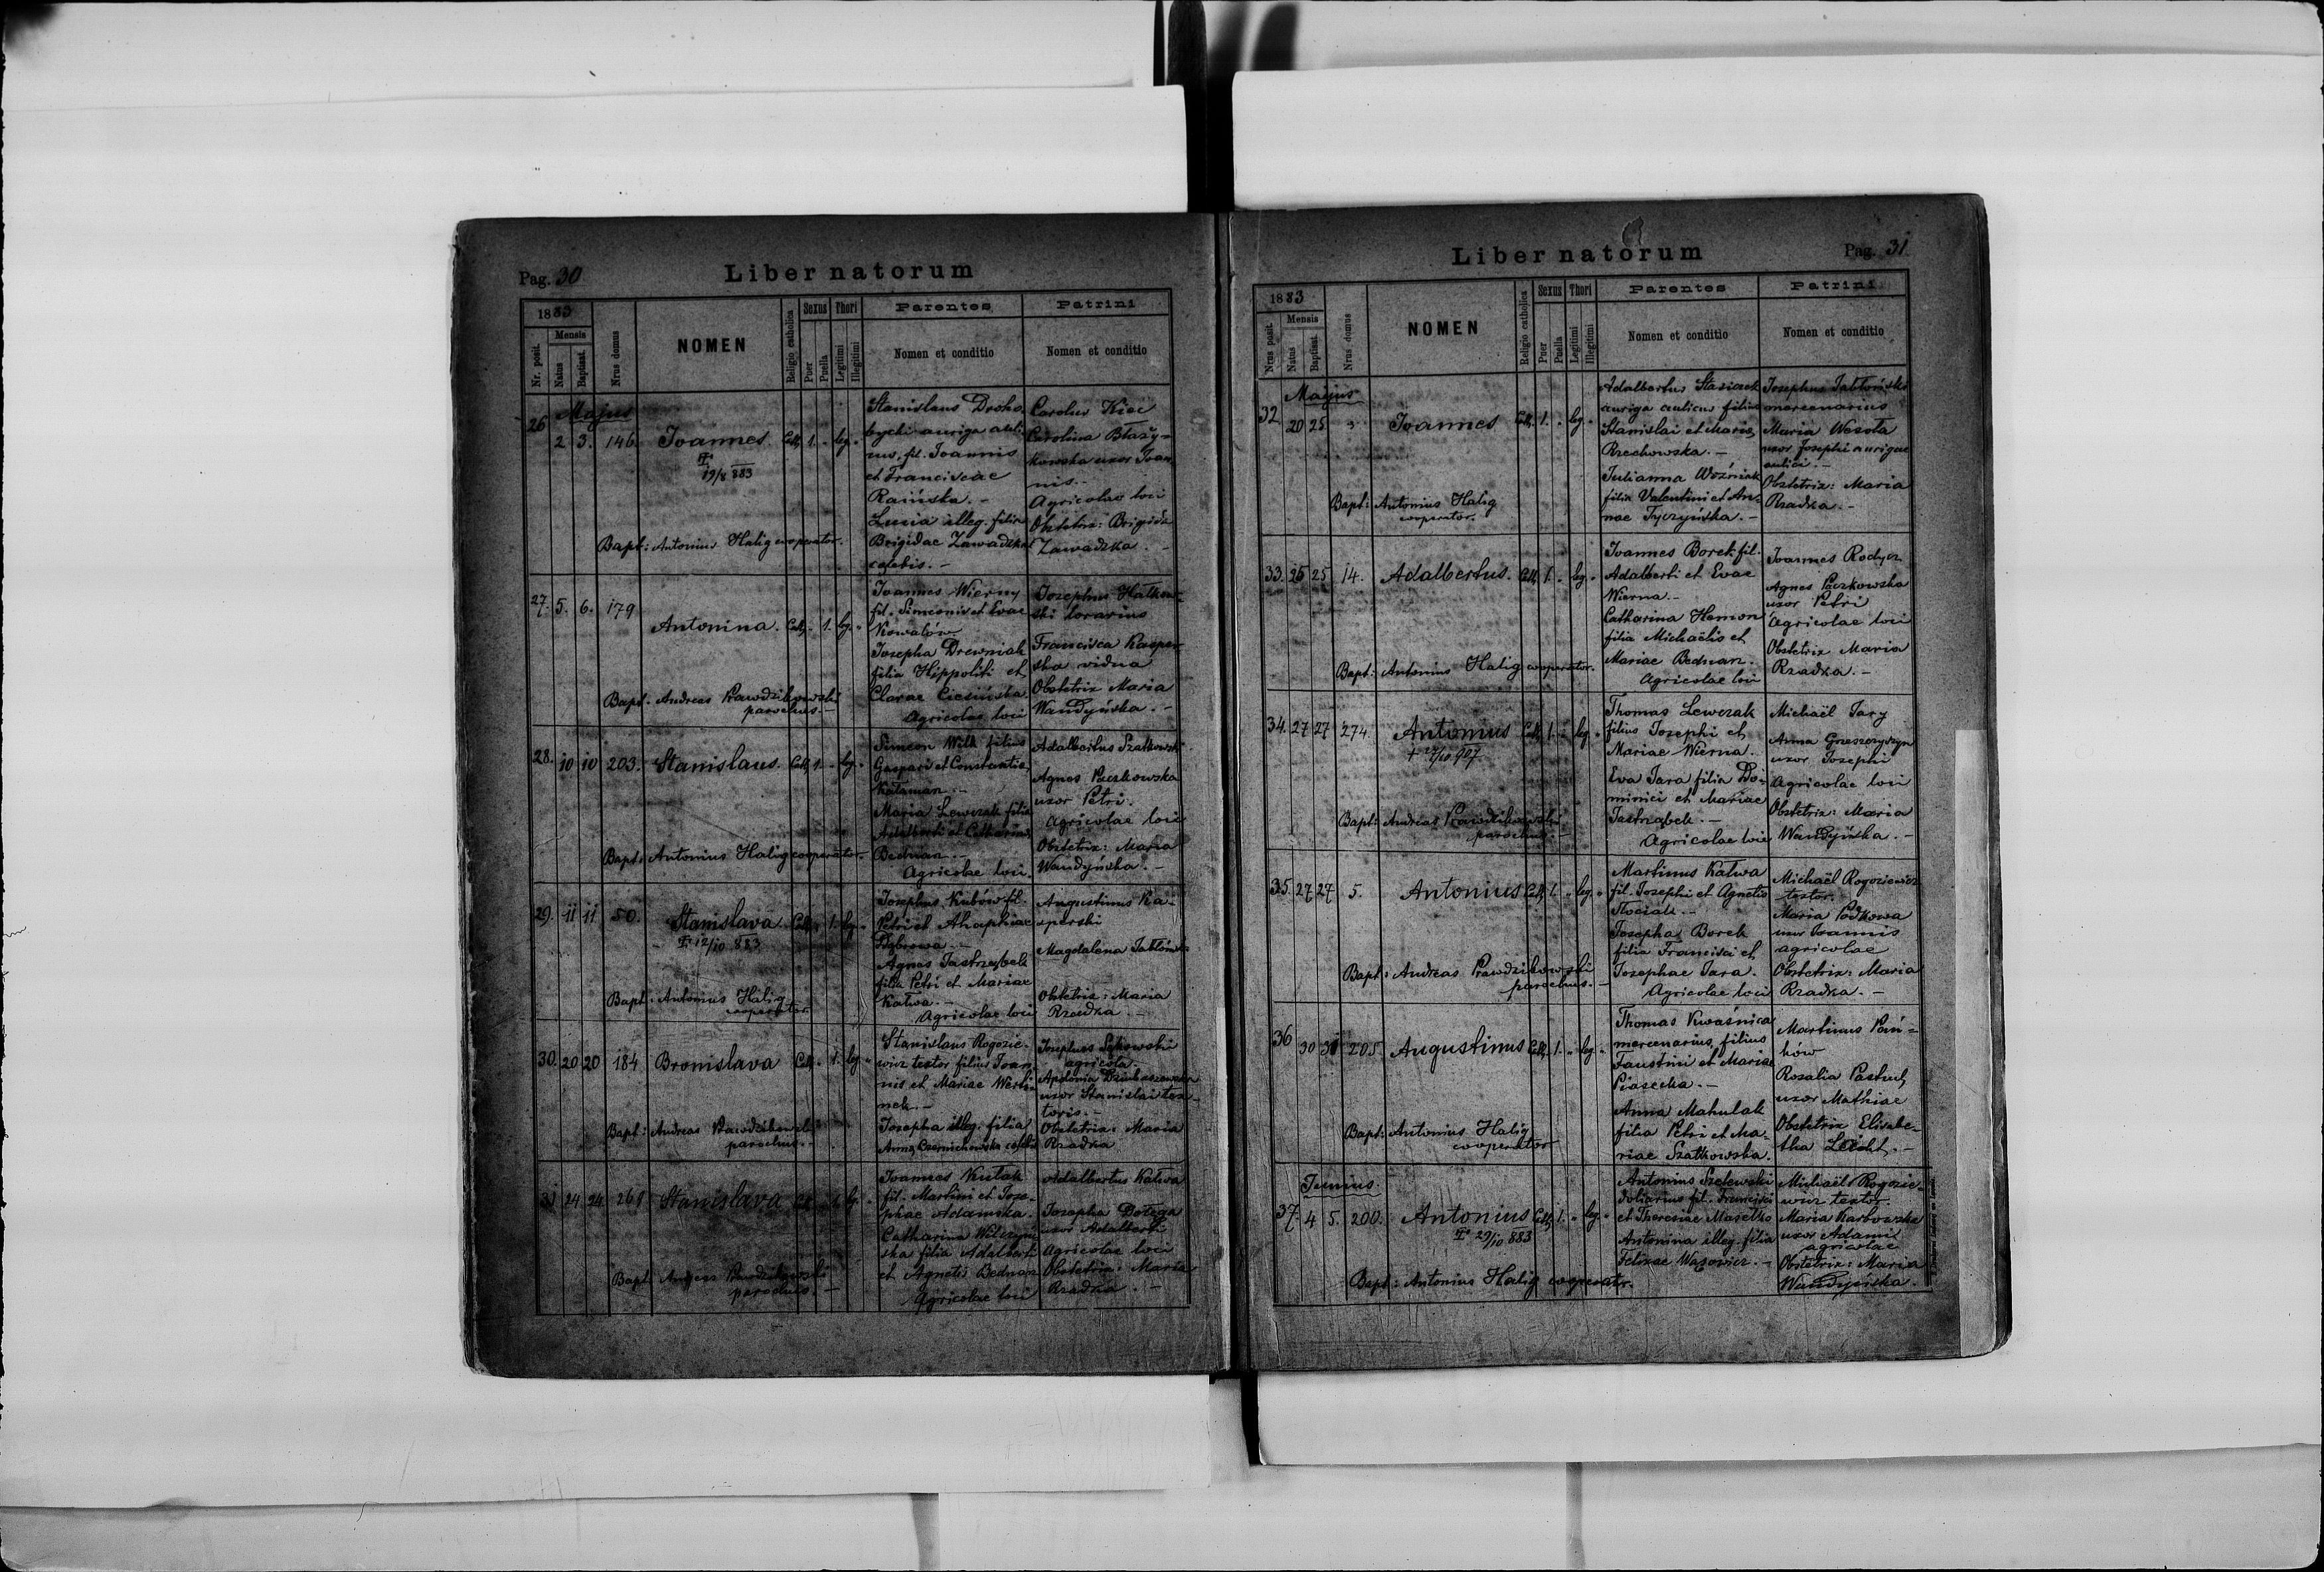 Pag. 30
Liber natorum
1883
Mensis
Nr. posit.
Natus
Baptisat.
Nrus domus
NOMEN
Religio catholica
Sexus
Puer
Puella
Thori
Legitimi
Illegitimi
Parentes
Nomen et conditio
Patrini
Nomen et conditio
Majus
26 2 3. 146. Joannes Cath. 1. " leg. "
19/8 883
Stanislaus Droho-
bycki auriga auli-
cus, fil. Joannis
et Franciscae
Raińska. -
Lucia illeg. filia
Brigidae Zawadzka
caelebis. -
Carolus Kiec
Carolina Błaży-
kowska uxor Joan
nis. -
Agricolae loci
Obstetrix: Brigida
Zawadzka. -
Bapt: Antonius Halig cooperator.
27. 5. 6. 179 Antonina. Cath. " 1. leg. "
Joannes Wierny
fil. Simeonis et Evae
Kowalów.
Josepha Drewniak
filia Hippoliti et
Clarae Ciesińska
Agricolae loci
Josephus
Francisca Kasper-
ska vidua
Obstetrix Maria
Wandyńska. -
Bapt. Andreas Prawdzikowski
parochus. -
28. 10 10 203. Stanislaus. Cath. 1. " leg. "
Simeon Wilk filius
Gaspari et Constantiae
Maria Lewczak filia
Adalberti et Catharinae
Bednarz. -
Agricolae loci.
Adalbertus Szatkowski
Agnes Paczkowska
uxor Petri.
Agricolae loci
Obstetrix: Maria
Wandyńska. -
Bapt: Antonius Halig cooperator.
29. 11 11 50. Stanislava Cath. " 1. leg. "
12/10 883
Josephus Kubów fil.
Petri et Ahaphiae
Dąbrowa. -
Agnes Jastrzębek
filia Petri et Mariae
Kalwa. -
Agricolae loci
Augustinus Ka-
sperski
Magdalena
Obstetrix: Maria
Rzadka. -
Bapt: Antonius Halig
cooperator
30. 20 20 184 Bronislava Cath. " 1. leg. "
Stanislaus Rogozie-
wicz textor filius Joan-
nis et Mariae
nek. -
Josepha illeg. filia
Annae Czernichowska
Josephus
agricola.
Apolonia
uxor Stanislai tex-
toris. -
Obstetrix: Maria
Rzadka
Bapt: Andreas Prawdzikowski
parochus. -
31 24 24 269 Stanislava Cath. " 1. leg. "
Joannes Kulak
fil. Martini et Jose-
phae Adamska.
Catharina Wilczyń-
ska filia Adalberti
et Agnetis Bednarz
Agricolae loci
Adalbertus Kalwa
Josepha Dołęga
uxor Adalberti
Agricolae loci
Obstetrix: Maria
Rzadka. -
Bapt. Andreas Prawdzikowski
parochus. -
Liber natorum
Pag. 31
1883
Mensis
Nrus posit.
Natus
Baptisat.
Nrus domus
NOMEN
Religio catholica
Sexus
Puer
Puella
Thori
Legitimi
Illegitimi
Parentes
Nomen et conditio
Patrini
Nomen et conditio
Majus
32. 20 25 " Joannes Cath. 1. " leg. "
Adalbertus Stasiczek
auriga aulicus filius
Stanislai et Mariae
Rzechowska. -
Julianna Woźniak
filia Valentini et An-
nae Tyczyńska. -
Josephus Jabłoński
mercenarius
Maria Wesoła
uxor Josephi aurigae
aulici. -
Obstetrix: Maria
Rzadka. -
Bapt: Antonius Halig
cooperator.
33. 25 25 14. Adalbertus. Cath. 1. " leg. "
Joannes Borek fil.
Adalberti et Evae
Wierna. -
Catharina Hemon
filia Michaëlis et
Mariae Bednarz.
Agricolae loci
Joannes Rodycz
Agnes Paczkowska
uxor Petri
Agricolae loci
Obstetrix Maria
Rzadka. -
Bapt: Antonius Halig cooperator.
34. 27 27 274. Antonius Cath. 1. " leg. "
+ 27/10 907
Thomas Lewczak
filius Josephi et
Mariae Wierna.
Eva Jara filia Do-
minici et Mariae
Jastrząbek. -
Agricolae loci
Michaël Jary
Anna Grzeszczyszyn
uxor Josephi
Agricolae loci
Obstetrix: Maria
Wandyńska. -
Bapt: Andreas Prawdzikowski
parochus. -
35. 27 27 5. Antonius Cath. 1. " leg. "
Martinus Kalwa
fil. Josephi et Agnetis
Josepha Borek
filia Francisci et
Josephae Jara.
Agricolae loci
Michaël Rogoziewicz
textor.
Maria
uxor Joannis
agricolae
Obstetrix: Maria
Rzadka. -
Bapt: Andreas Prawdzikowski
parochus. -
36 30 31 205 Augustinus Cath. 1. " leg. "
Thomas Kwaśnica
mercenarius, filius
Faustini et Mariae
Piasecka. -
Anna Mahulak
filia Petri et Ma-
riae Szatkowska.
Martinus Pań-
ków
Rosalia
uxor Mathiae
Obstetrix Elisabe-
tha Leicht. -
Bapt: Antonius Halig
cooperator
Junius
37. 4 5. 200. Antonius Cath. 1. " leg. "
29/10 883
Antonius Szelewski
doliarius fil. Francisci
et Theresiae Masełko
Antonina illeg. filia
Felixae Wąsowicz. -
Michaël Rogozie-
wicz textor.
Maria Karbowska
uxor Adami
agricolae
Obstetrix: Maria
Wandyńska.
Bapt: Antonius Halig cooperator.